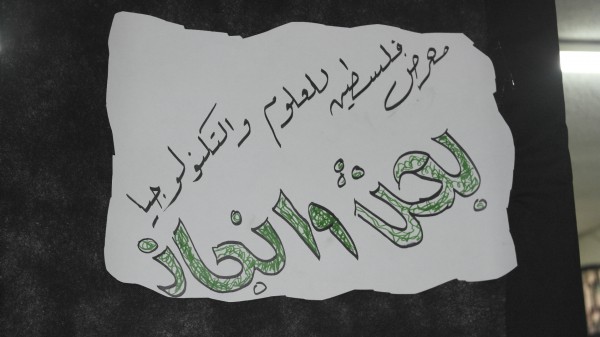 معرض فلسطين للعلوم والتكنولوجيا
بحث وانجاز